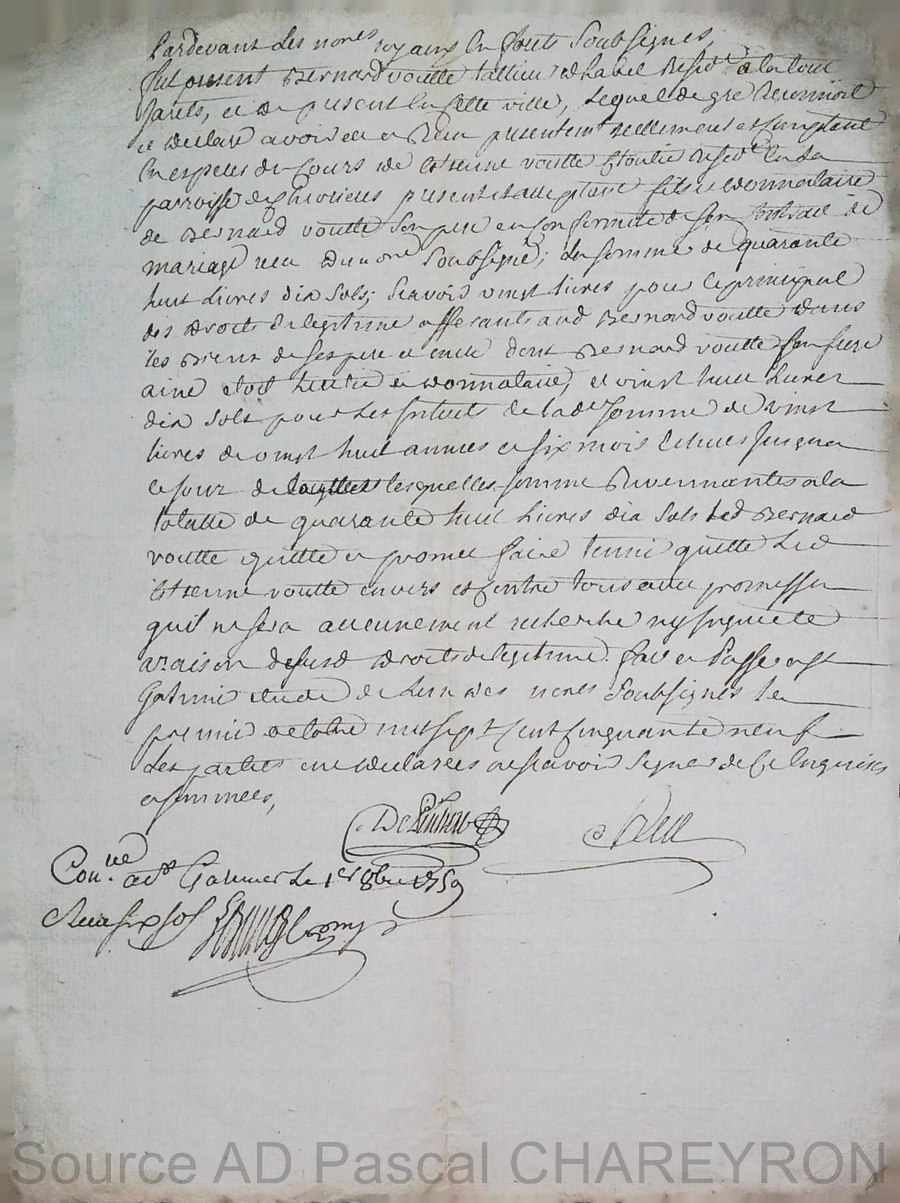 Pardevant les no.res royaux en forets soubsignes,
fut present Bernard voutte tallieur dhabel resid.t a la tour
Jarets, et de present en cette ville, lequel de gre reconnoit
et declare avoir eu et recu presentem.t reellement et comptant
en especes du cours de estienne voutte resid.t en la
parroisse de present et acceptant fils et donnataire
de Bernard voutte son pere en conformite de son contrait de
mariage recu du no.re soubsigné; la somme de quarante
huit livres dix sols; scavoir vingt livres pour le principal
des droits de legitime afferants aud Bernard voutte dans
les biens de ses pere et mere dont Bernard voutte son frere
ainé etoit heritié et donnataire, et vingt huit livres
dix sols pour les interets de lad.e somme de vingt
livres de vingt huit années et six mois echues jusqua
ce jour lesquelles somme revennantes a la
totalle de quarante huit livres dix sols led Bernard
voutte quitte et promet faire tenir quitte led
estienne voutte envers et contre tous avec promesse
quil ne sera aucunement recherché ny inquieté
a raison desusd droits de legitime. fait et passé a st
Galmier etude de lun des no.res soubsignes le
premier octobre mil sept cent cinquante neuf
les parties ont declarées ne scavoir signer de ce enquises
et sommées,
Con.lle a st Galmier le 1er 8bre 1759
Recu six sols
Source AD Pascal CHAREYRON